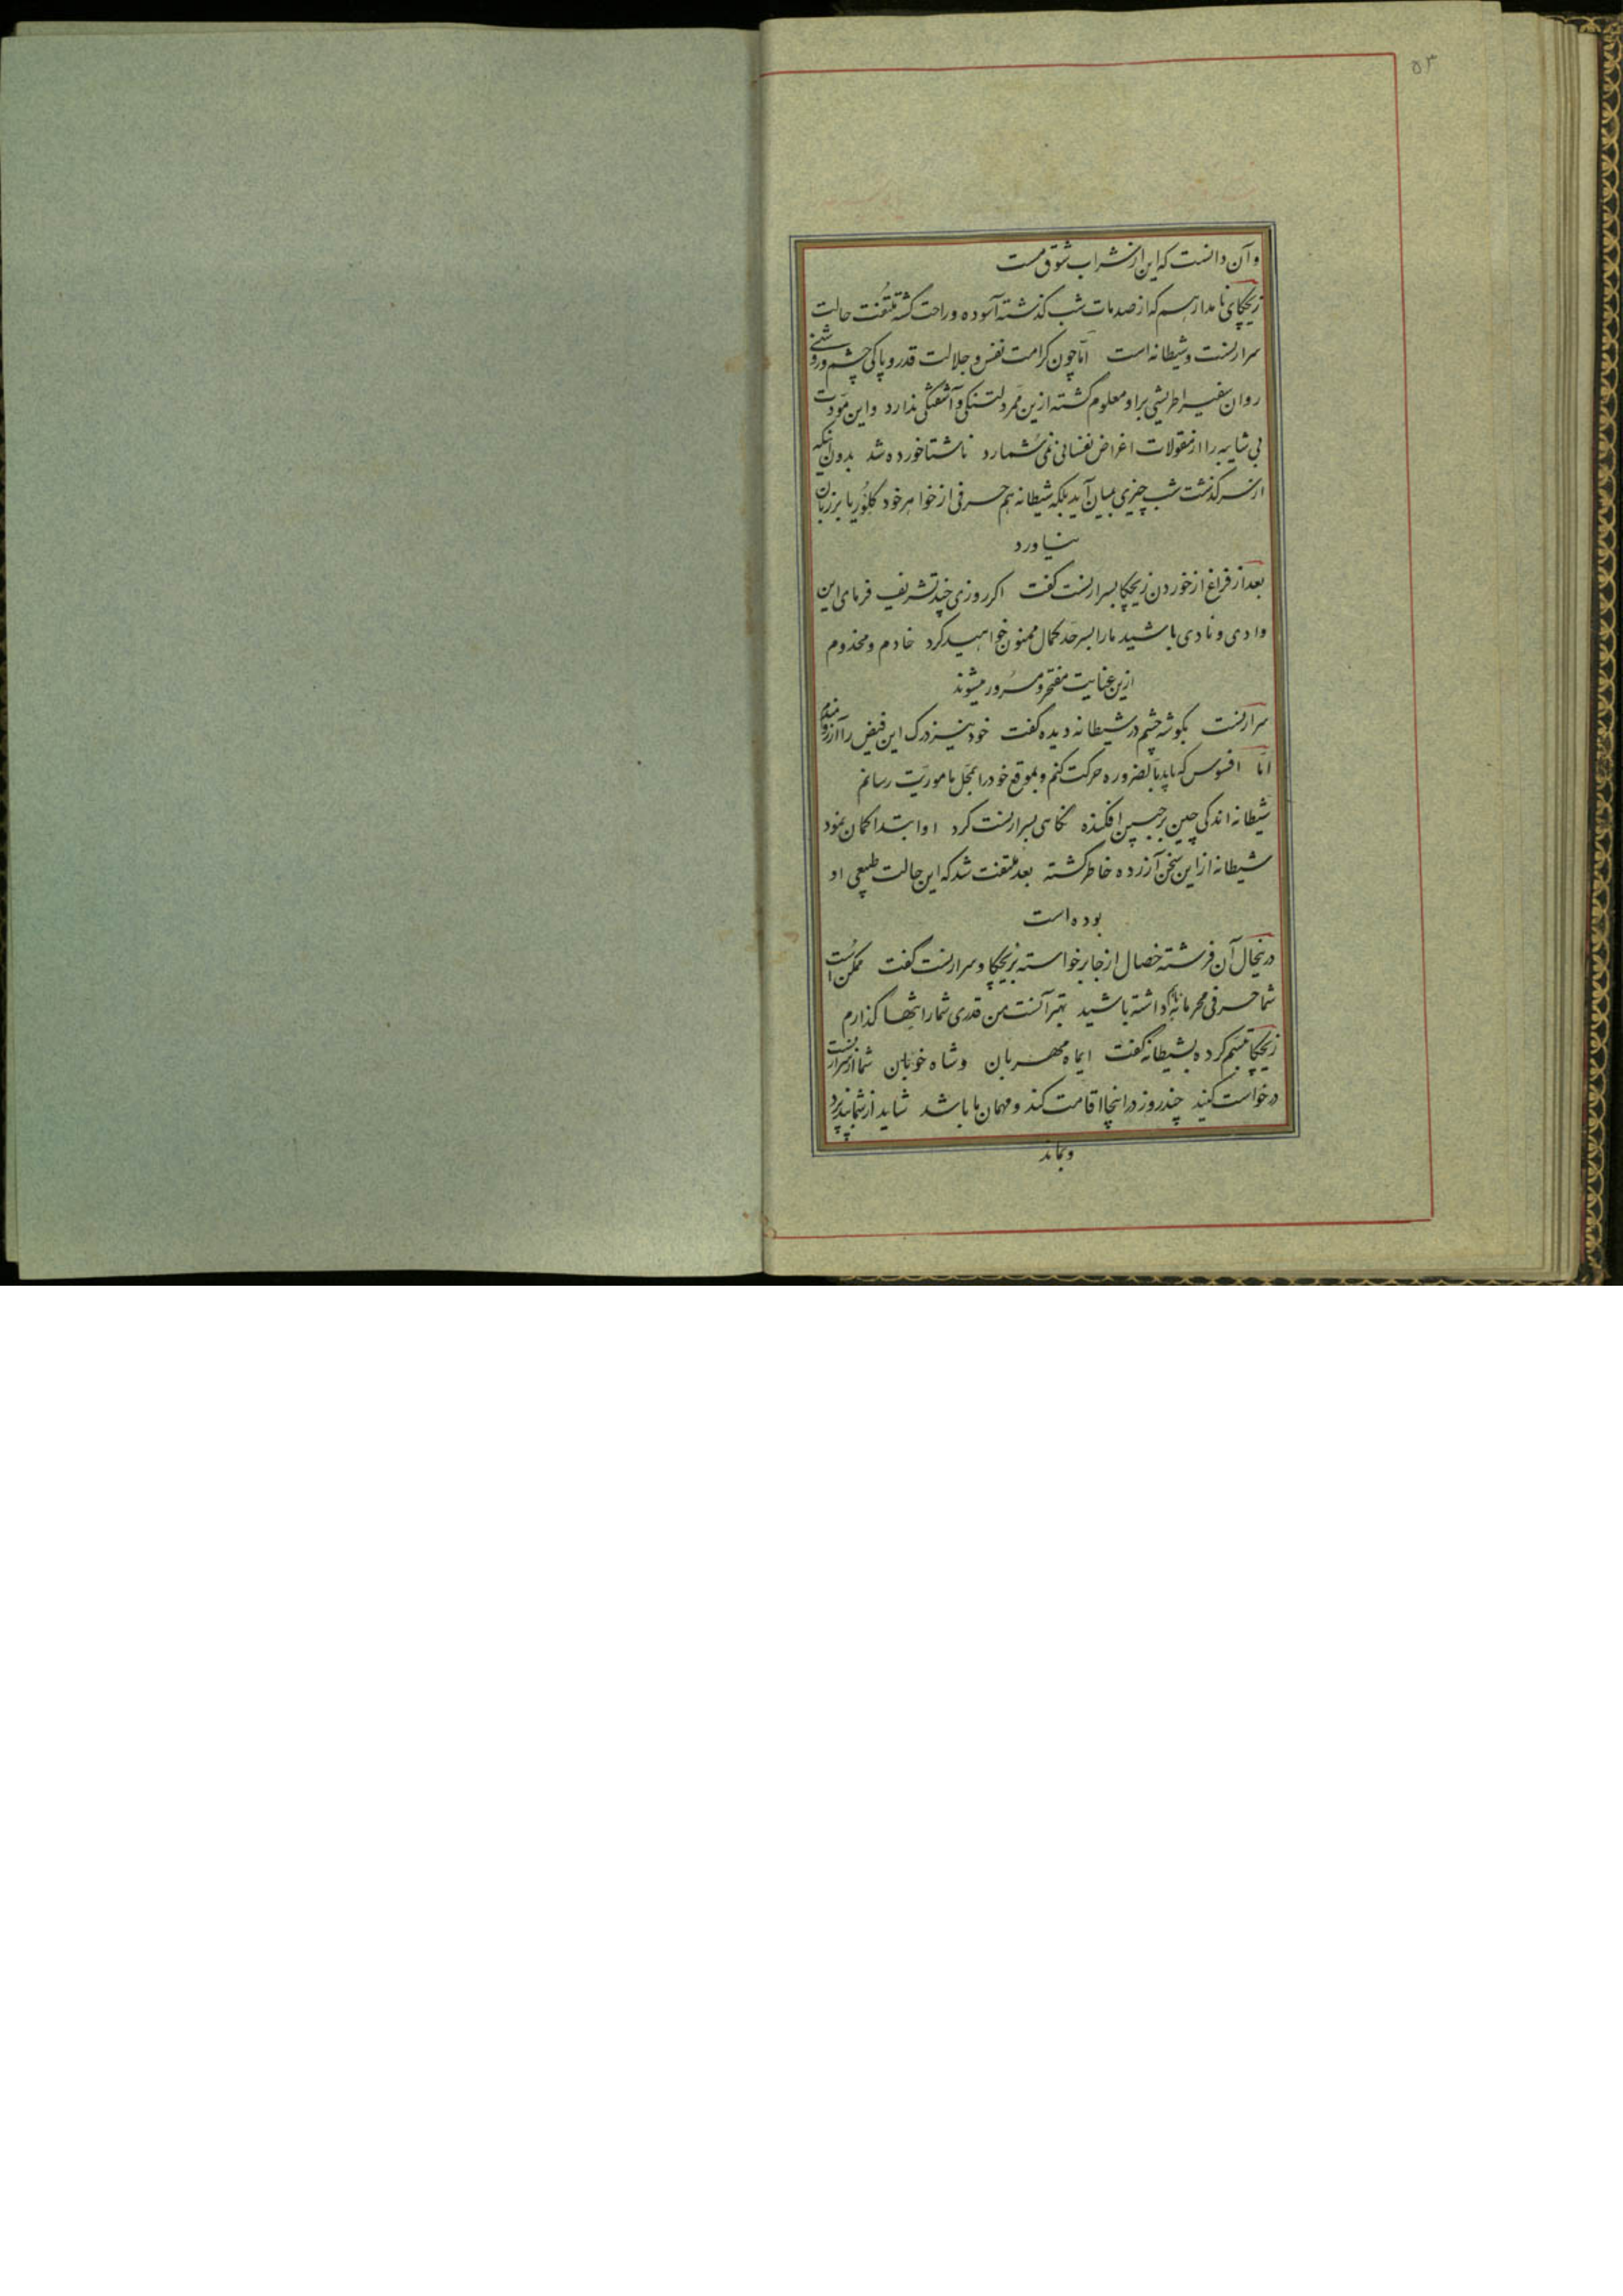 ۵۳
و آن دانست که این از شراب شوق مست
زیچکای نامدار هم که از صدمات شب گذشته آسوده و راحت گشته ملتفت حالت
سرارنست و شیطانه است امّا چون کرامت نفس و جلالت قدر و پاکی چشم و روشنی
روان سفیر اطریشی بر او معلوم گشته ازین ممر دلتنگی و آشفتگی ندارد و این مودت
بی شایبه را از مقولات اغراض نفسانی نمی‌شمارد ناشتا خورده شد بدون آنکه
از سرگذشت شب چیزی بمیان آید بلکه شیطانه هم حرفی از خواهر خود کلوریا بر زبان
نیاورد
بعد از فراغ از خوردن زیچکا بسرارنست گفت اگر روزی چند تشریف فرمای این
وادی و نادی باشید ما را بسرحد کمال ممنون خواهید کرد خادم و مخدوم
ازین عنایت مفتخر و مسرور میشوند
سرارنست بگوشه چشم در شیطانه دیده گفت خود نیز درک این فیض را آرزومندم
امّا افسوس که باید بالضروره حرکت کنم و بموقع خود را بمحل ماموریّت رسانم
شیطانه اندکی چین بر جبین افکنده نگاهی بسرارنست کرد او ابتدا گمان نمود
شیطانه از این سخن آزرده خاطر گشته بعد ملتفت شد که این حالت طبیعی او
بوده است
درینحال آن فرشته خصال از جا برخواسته بزیچکا و سرارنست گفت ممکن است
شما حرفی محرمانه داشته باشید بهتر آنست من قدری شما را تنها گذارم
زیچکا تبسّم کرده بشیطانه گفت ایماه مهربان و شاه خوبان شما از سرارنست
درخواست کنید چند روز در اینجا اقامت کند و مهمان ما باشد شاید از شما بپذیرد
و بماند